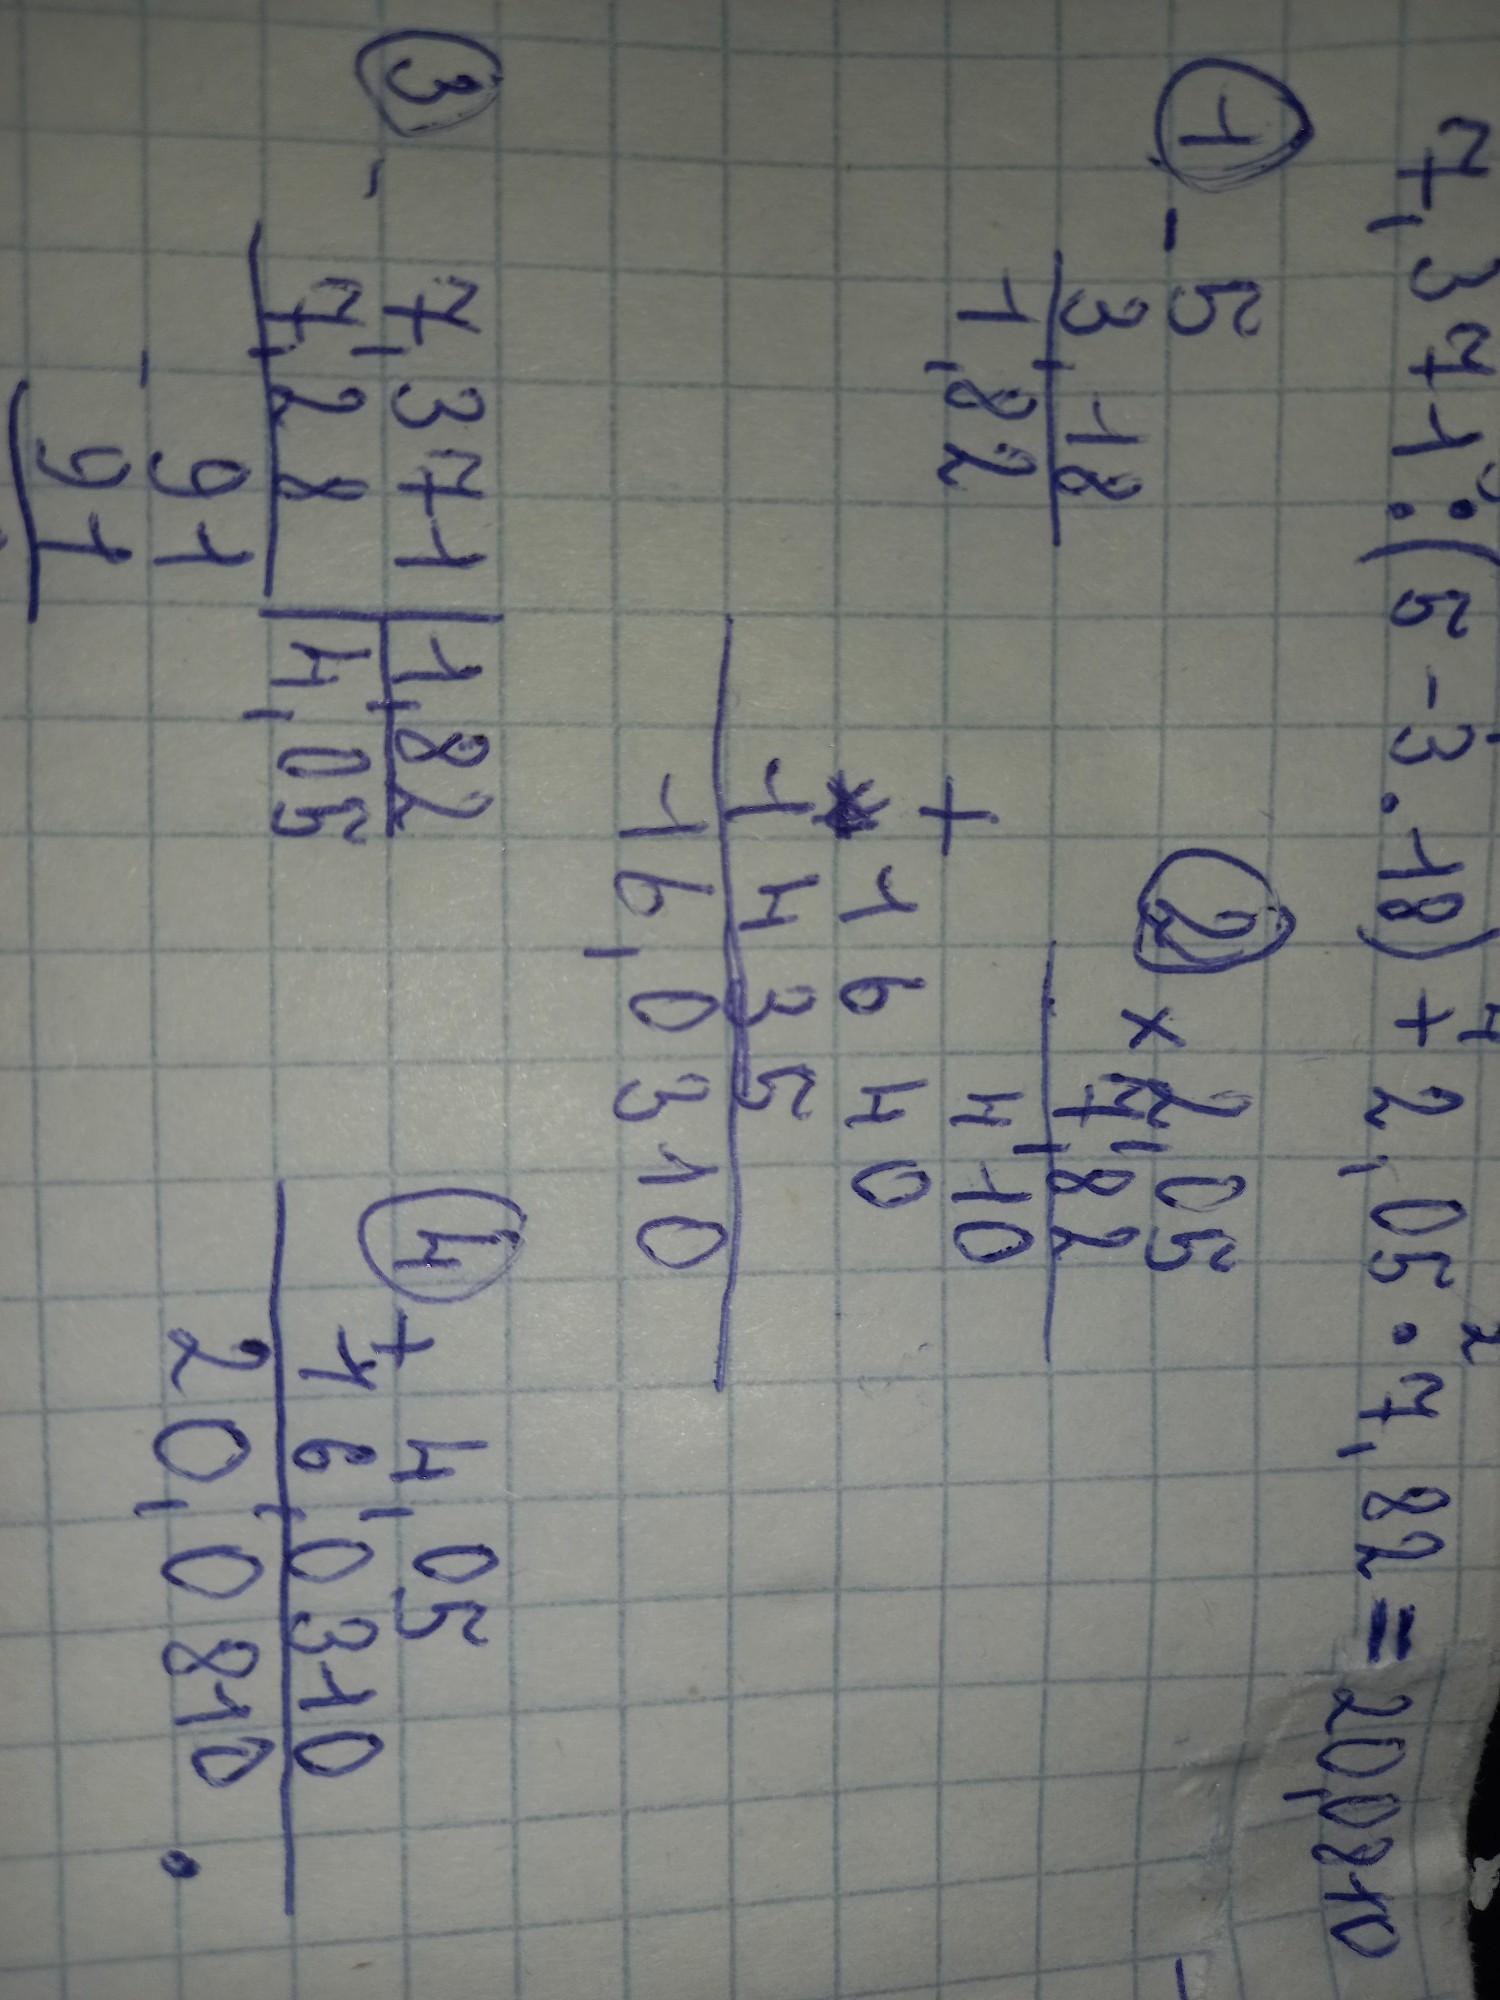 7,371:(5-3.18)+2,05·7,82=20,0810
3 1 4 2
1
- 5
3,18
1,82
2
× 2,05
7,82
4 10
+ 1640
1435
16,0310
3
- 7,371 | 1,82
7,28 | 4,05
- 91
91
4
+ 4,05
16,0310
20,0810.